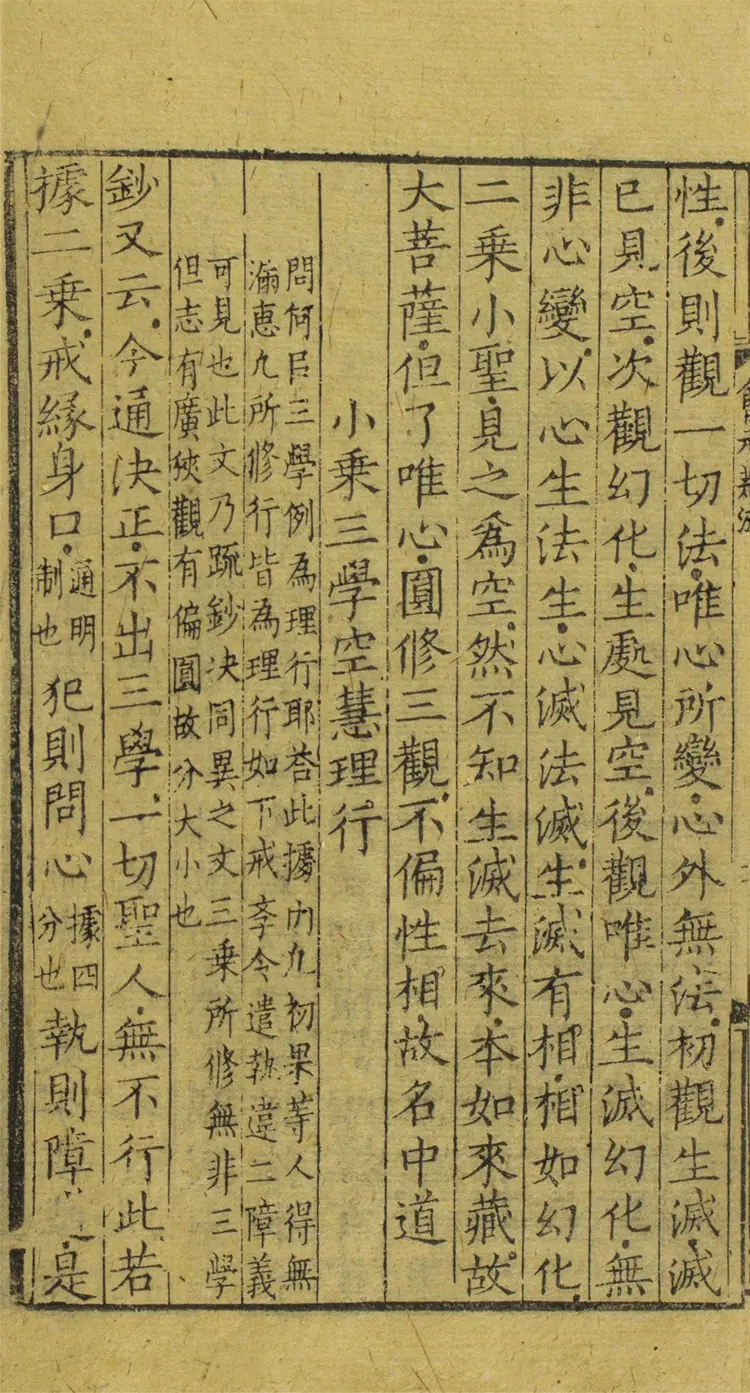 性後則觀一切法唯心所變心外無法初觀生滅滅
已見空次觀幻化生處見空後觀唯心生滅幻化無
非心變以心生法生心滅法滅生滅有相相如幻化
二乘小聖見之為空然不知生滅去來本如來藏故
大菩薩但了唯心圓修三觀不偏性相故名中道
小乘三學空慧理行
問何㠯三學例為理行耶荅此據內凡初果等人得無
漏惠凡所修行皆為理行如下戒孝令遣執違二障義
可見也此文乃䟽鈔决同異之文三乘所修無非三學
但志有廣狹觀有偏圓故分大小也
鈔又云今通决正不出三學一切聖人無不行此若
據二乘戒緣身口通明制也犯則問心據四分也執則障是